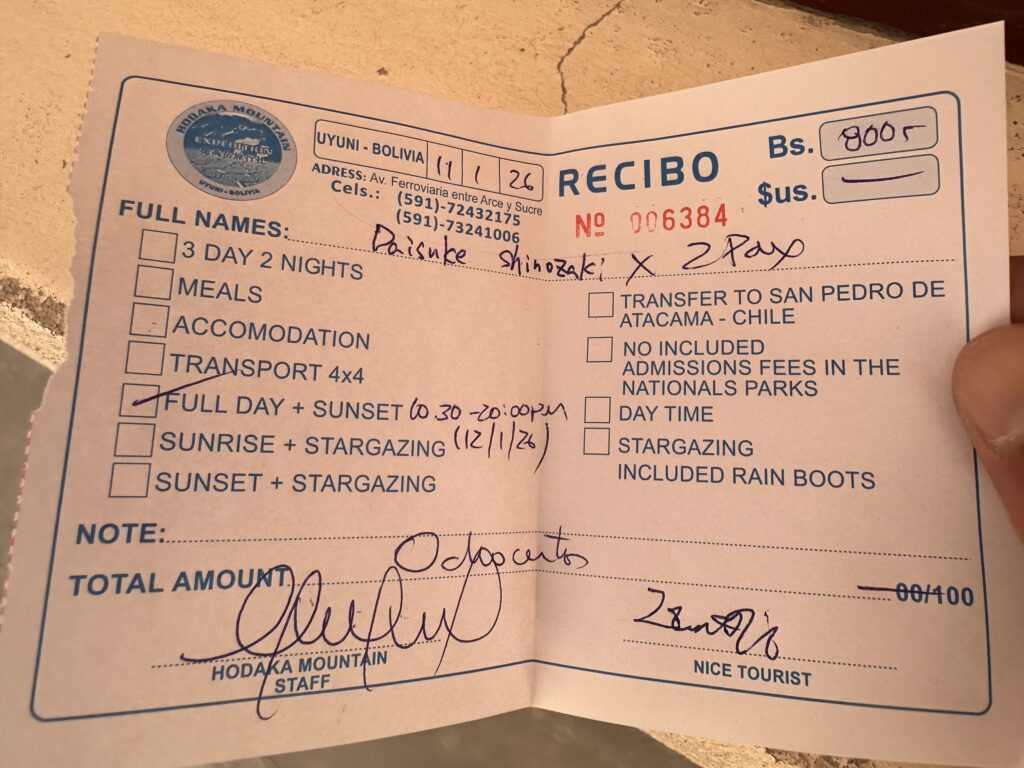 HODAKA MOUNTAIN
EXPEDITION
UYUNI - BOLIVIA
UYUNI - BOLIVIA 11 1 26
ADRESS: Av. Ferroviaria entre Arce y Sucre
Cels.: (591)-72432175
(591)-73241006
RECIBO
Nº 006384
Bs. 800
$us. —
FULL NAMES: Daisuke Shinozaki x 2 Pax
3 DAY 2 NIGHTS
MEALS
ACCOMODATION
TRANSPORT 4x4
FULL DAY + SUNSET 10:30 -20:00pm
SUNRISE + STARGAZING (12/1/26)
SUNSET + STARGAZING
TRANSFER TO SAN PEDRO DE
ATACAMA - CHILE
NO INCLUDED
ADMISSIONS FEES IN THE
NATIONALS PARKS
DAY TIME
STARGAZING
INCLUDED RAIN BOOTS
NOTE:
TOTAL AMOUNT Ochocientos 00/100
HODAKA MOUNTAIN
STAFF
NICE TOURIST